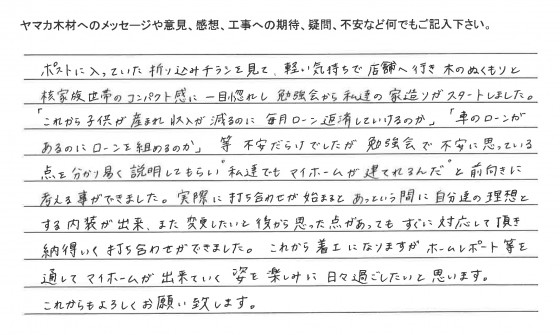 ヤマカ木材へのメッセージや意見、感想、工事への期待、疑問、不安など何でもご記入下さい。
ポストに入っていた折り込みチラシを見て、軽い気持ちで店舗へ行き木のぬくもりと
核家族世帯のコンパクト感に一目惚れし勉強会から私達の家造りがスタートしました。
「これから子供が産まれ収入が減るのに毎月ローン返済していけるのか」「車のローンが
あるのにローンを組めるのか」等不安だらけでしたが勉強会で不安に思っている
点を分かり易く説明してもらい"私達でもマイホームが建てれるんだ"と前向きに
考える事ができました。実際に打ち合わせが始まるとあっという間に自分達の理想と
する内装が出来、また変更したいと後から思った点があってもすぐに対応して頂き
納得いく打ち合わせができました。これから着工になりますがホームレポート等を
通してマイホームが出来ていく姿を楽しみに日々過ごしたいと思います。
これからもよろしくお願い致します。